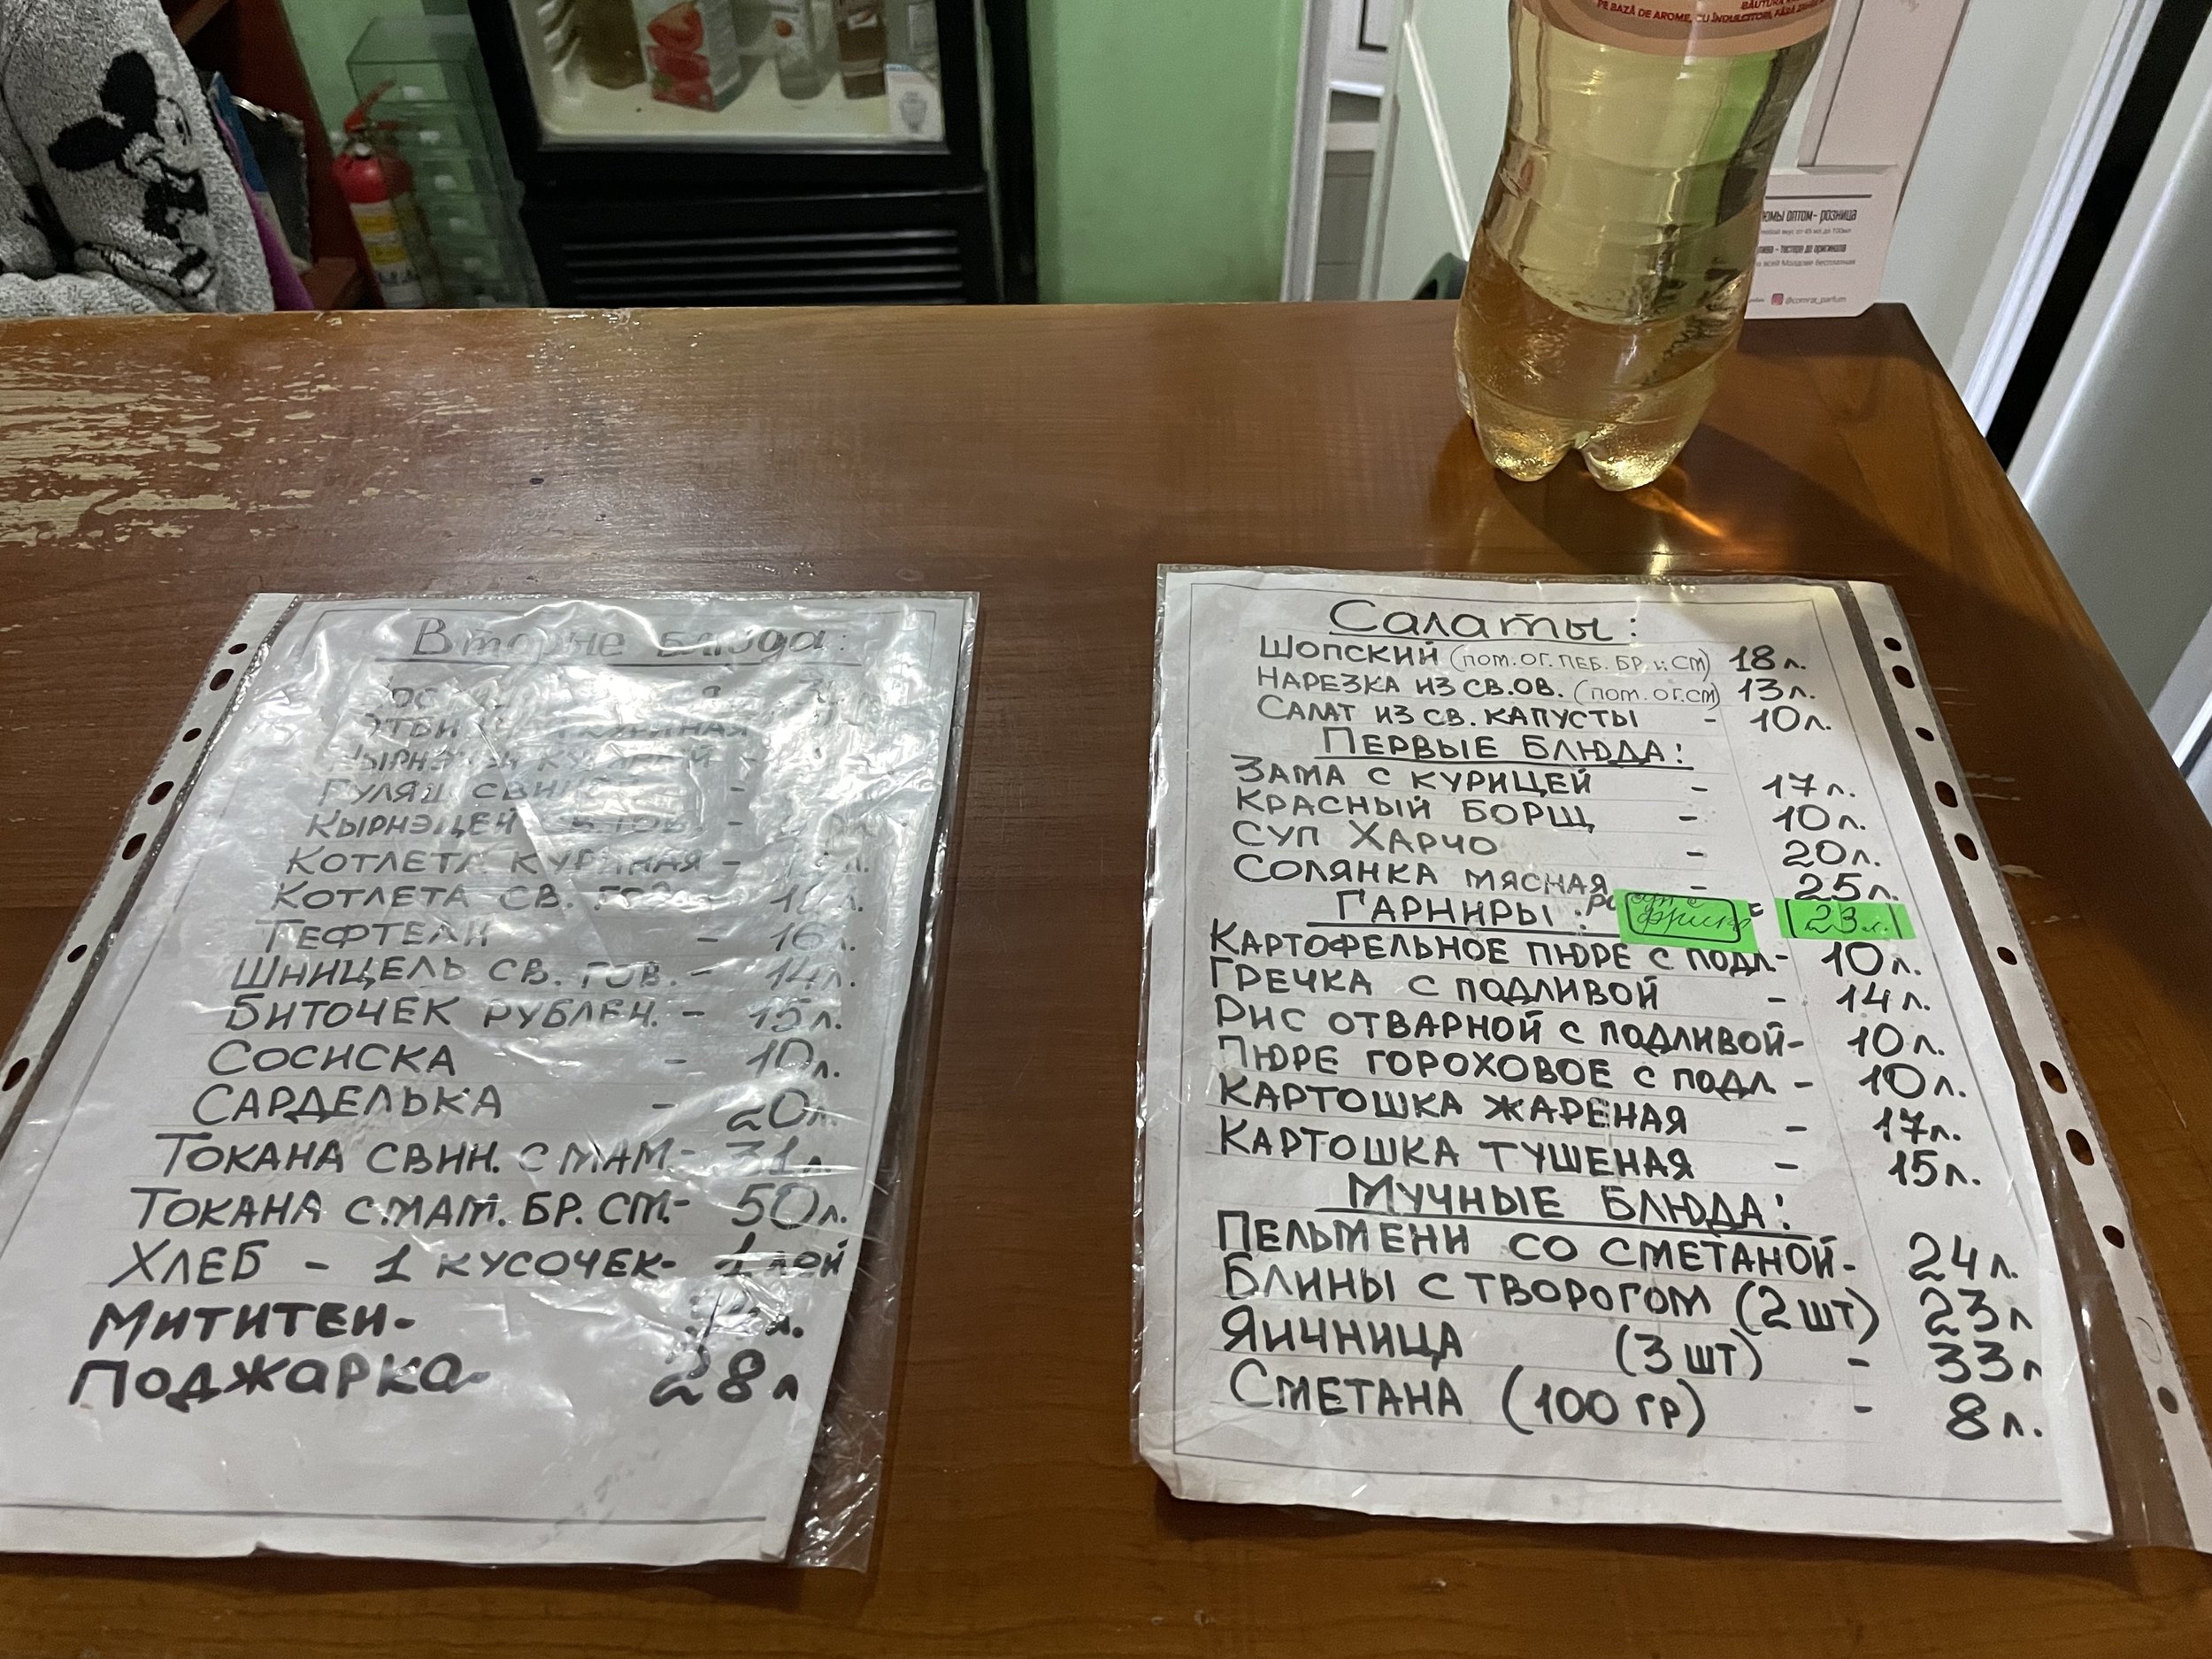 BĂUTURĂ
PE BAZĂ DE AROME, CU ÎNDULCITORI, FĂRĂ
ОПТОМ- РОЗНИЦА
вкус от 45 мл до 100мл
- тестера до оригинала
всей Молдове бесплатная
@comrat_parfum
Вторые блюда:
ГУЛЯШ
КЫРНЭЦЕЙ -
КОТЛЕТА КУРИНАЯ -
КОТЛЕТА СВ. ГОВ. -
ТЕФТЕЛИ - 16л.
ШНИЦЕЛЬ СВ. ГОВ. - 14л.
БИТОЧЕК РУБЛЕН. - 15л.
СОСИСКА - 10л.
САРДЕЛЬКА - 20л.
ТОКАНА СВИН. С МАМ.- 31л.
ТОКАНА С МАМ. БР. СМ.- 50л.
ХЛЕБ - 1 КУСОЧЕК- 1 лей
МИТИТЕИ- л.
ПОДЖАРКА- 28л
Салаты:
ШОПСКИЙ (ПОМ. ОГ. ПЕБ. БР. и СМ) 18л.
НАРЕЗКА ИЗ СВ.ОВ. (ПОМ. ОГ. СМ) 13л.
САЛАТ ИЗ СВ. КАПУСТЫ - 10л.
ПЕРВЫЕ БЛЮДА:
ЗАМА С КУРИЦЕЙ - 17л.
КРАСНЫЙ БОРЩ - 10л.
СУП ХАРЧО - 20л.
СОЛЯНКА МЯСНАЯ - 25л.
ГАРНИРЫ: 23л.
КАРТОФЕЛЬНОЕ ПЮРЕ С ПОДЛ.- 10л.
ГРЕЧКА С ПОДЛИВОЙ - 14л.
РИС ОТВАРНОЙ С ПОДЛИВОЙ- 10л.
ПЮРЕ ГОРОХОВОЕ С ПОДЛ. - 10л.
КАРТОШКА ЖАРЕНАЯ - 17л.
КАРТОШКА ТУШЕНАЯ - 15л.
МУЧНЫЕ БЛЮДА:
ПЕЛЬМЕНИ СО СМЕТАНОЙ- 24л.
БЛИНЫ С ТВОРОГОМ (2 ШТ) 23л
ЯИЧНИЦА (3 ШТ) - 33л
СМЕТАНА (100 ГР) - 8л.